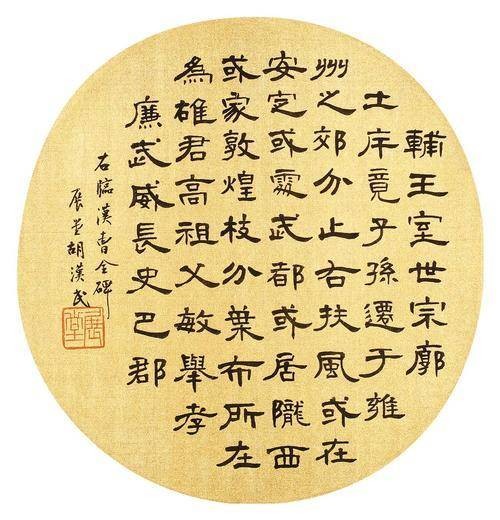 輔王室世宗廓
土斥竟子孫遷于雍
州之郊分止右扶風或在
安定或處武都或居隴西
或家敦煌枝分葉布所在
為雄君高祖父敏舉孝
廉武威長史巴郡
右臨漢曹全碑
展堂胡漢民
展堂